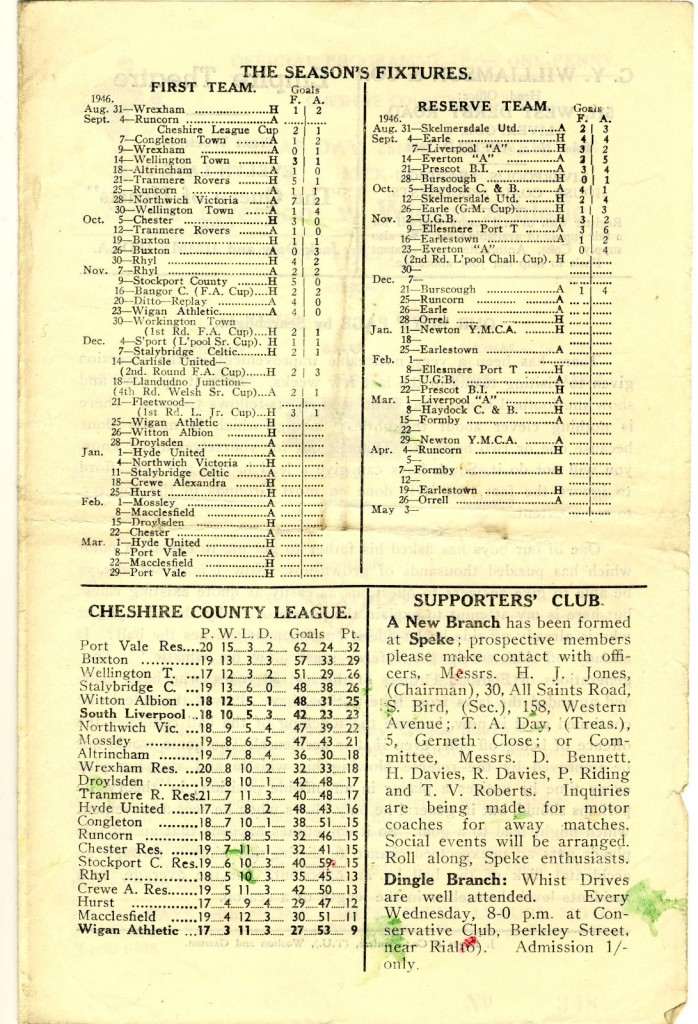 THE SEASON'S FIXTURES.
FIRST TEAM. Goals
1946. F. A.
Aug. 31—Wrexham ..................H 1 2
Sept. 4—Runcorn ..................A
Cheshire League Cup 2 1
7—Congleton Town ...............A 1 2
9—Wrexham ..................A 0 1
14—Wellington Town ............H 3 1
18—Altrincham ..................A 1 0
21—Tranmere Rovers ............H 5 1
25—Runcorn ..................A 1 1
28—Northwich Victoria .........A 7 2
30—Wellington Town ............A 1 4
Oct. 5—Chester ..................H 3 0
12—Tranmere Rovers ............A 1 0
19—Buxton ..................H 1 1
26—Buxton ..................A 0 3
30—Rhyl ..................H 4 2
Nov. 7—Rhyl ..................A 2 2
9—Stockport County ............H 5 0
16—Bangor C. (F.A. Cup)......H 2 2
20—Ditto—Replay ...............A 4 0
23—Wigan Athletic...............A 4 0
30—Workington Town
(1st Rd. F.A. Cup)....H 2 1
Dec. 4—S'port (L'pool Sr. Cup). H 1 1
7—Stalybridge Celtic............H 2 1
14—Carlisle United—
(2nd. Round F.A. Cup)...H 2 3
18—Llandudno Junction—
(4th Rd. Welsh Sr. Cup)...A 2 1
21—Fleetwood—
(1st Rd. L. Jr. Cup)...H 3 1
25—Wigan Athletic ...............H
26—Witton Albion ...............H
28—Droylsden ..................A
Jan. 1—Hyde United ...............A
4—Northwich Victoria .........H
11—Stalybridge Celtic ............A
18—Crewe Alexandra ............H
25—Hurst ..................H
Feb. 1—Mossley ..................A
8—Macclesfield ...............A
15—Droylsden ..................H
22—Chester ..................A
Mar. 1—Hyde United ...............H
8—Port Vale ..................A
22—Macclesfield ...............H
29—Port Vale ..................H
RESERVE TEAM. Goals
1946. F. A.
Aug. 31—Skelmersdale Utd. .........A 2 3
Sept. 4—Earle ..................H 4 4
7—Liverpool "A" ...............H 3 2
14—Everton "A" ...............A 2 5
21—Prescot B.I. ...............A 3 4
28—Burscough ..................H 0 1
Oct. 5—Haydock C. & B. .........A 4 1
12—Skelmersdale Utd. .........H 2 4
26—Earle (G.M. Cup)............H 1 3
Nov. 2—U.G.B. ..................H 3 2
9—Ellesmere Port T .........A 3 6
16—Earlestown ..................A 1 2
23—Everton "A" 0 4
(2nd Rd. L'pool Chall. Cup). H
30—
Dec. 7—
21—Burscough ..................A 1 4
25—Runcorn ..................A
26—Earle ..................A
28—Orrell ..................H
Jan. 11—Newton Y.M.C.A. .........H
18—
25—Earlestown ..................A
Feb. 1—
8—Ellesmere Port T .........H
15—U.G.B. ..................A
22—Prescot B.I. ...............H
Mar. 1—Liverpool "A" ...............A
8—Haydock C. & B. .........H
15—Formby ..................A
22—
29—Newton Y.M.C.A. .........A
Apr. 4—Runcorn ..................H
5—
7—Formby ..................H
12—
19—Earlestown ..................H
26—Orrell ..................A
May 3—
CHESHIRE COUNTY LEAGUE.
P. W. L. D. Goals Pt.
Port Vale Res....20 15....3....2.... 62....24....32
Buxton ............19 13....3....3.... 57....33....29
Wellington T. ...17 12....3....2.... 51....29....26
Stalybridge C. ...19 13....6....0.... 48....38....26
Witton Albion ...18 12....5....1.... 48....31....25
South Liverpool ..18 10....5....3.... 42....23....23
Northwich Vic. ...18....9....5....4.... 47....39....22
Mossley ............19....8....6....5.... 47....43....21
Altrincham .........19....7....8....4.... 36....30....18
Wrexham Res. ...20....8 10....2.... 32....33....18
Droylsden .........19....8 10....1.... 42....48....17
Tranmere R. Res.21....7 11....3.... 40....48....17
Hyde United ......17....7....8....2.... 48....43....16
Congleton .........18....7 10....1.... 38....51....15
Runcorn ............18....5....8....5.... 32....46....15
Chester Res. ......19....7....11....1.... 32....41....15
Stockport C. Res.19....6 10....3.... 40....59....15
Rhyl ..................18....5 10....3.... 35....45....13
Crewe A. Res....19....5 11....3.... 42....50....13
Hurst ...............17....4....9....4.... 29....47....12
Macclesfield ......19....4 12....3.... 30....51....11
Wigan Athletic ...17....3 11....3.... 27....53.... 9
SUPPORTERS' CLUB.
A New Branch has been formed
at Speke; prospective members
please make contact with offi-
cers, Messrs. H. J. Jones,
(Chairman), 30, All Saints Road,
S. Bird, (Sec.), 158, Western
Avenue; T. A. Day, (Treas.),
5, Gerneth Close; or Com-
mittee, Messrs. D. Bennett,
H. Davies, R. Davies, P. Riding
and T. V. Roberts. Inquiries
are being made for motor
coaches for away matches.
Social events will be arranged.
Roll along, Speke enthusiasts.
Dingle Branch: Whist Drives
are well attended. Every
Wednesday, 8-0 p.m. at Con-
servative Club, Berkley Street,
near Rialto). Admission 1/-
only.